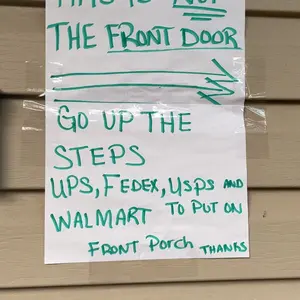 THIS IS NOT
THE FRONT DOOR
GO UP THE
STEPS
UPS, FEDEX, USPS AND
WALMART TO PUT ON
FRONT PORCH THANKS